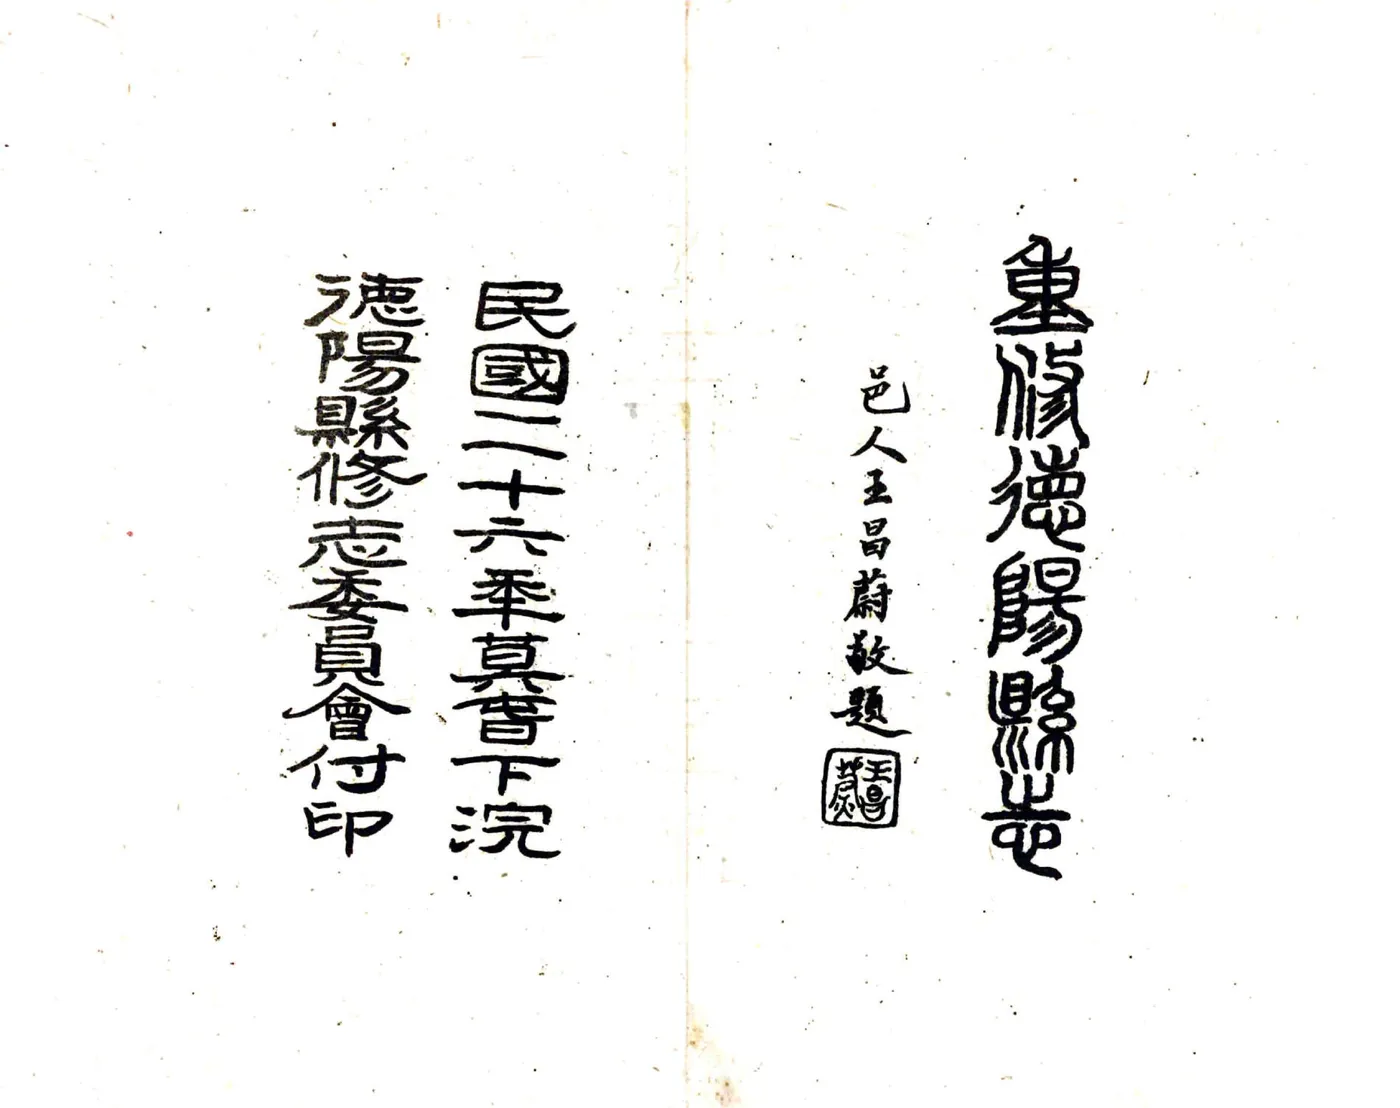 重修德陽縣志
邑人王昌蔚敬題
王昌蔚
民國二十六年莫春下浣
德陽縣修志委員會付印